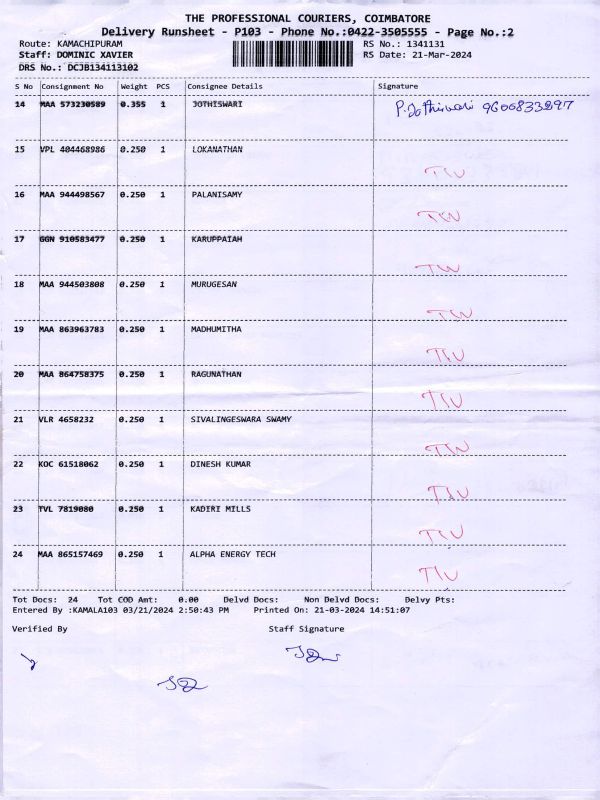 THE PROFESSIONAL COURIERS, COIMBATORE
Delivery Runsheet - P103 - Phone No.:0422-3505555 - Page No.:2
Route: KAMACHIPURAM RS No.: 1341131
Staff: DOMINIC XAVIER RS Date: 21-Mar-2024
DRS No.: DCJB134113102
S No Consignment No Weight PCS Consignee Details Signature
14 MAA 573230589 0.355 1 JOTHISWARI P. Jothiswari 9606833897
15 VPL 404468986 0.250 1 LOKANATHAN
16 MAA 944498567 0.250 1 PALANISAMY
17 GGN 910583477 0.250 1 KARUPPAIAH
18 MAA 944503808 0.250 1 MURUGESAN
19 MAA 863963783 0.250 1 MADHUMITHA
20 MAA 864758375 0.250 1 RAGUNATHAN
21 VLR 4658232 0.250 1 SIVALINGESWARA SWAMY
22 KOC 61518062 0.250 1 DINESH KUMAR
23 TVL 7819080 0.250 1 KADIRI MILLS
24 MAA 865157469 0.250 1 ALPHA ENERGY TECH
Tot Docs: 24 Tot COD Amt: 0.00 Delvd Docs: Non Delvd Docs: Delvy Pts:
Entered By :KAMALA103 03/21/2024 2:50:43 PM Printed On: 21-03-2024 14:51:07
Verified By Staff Signature